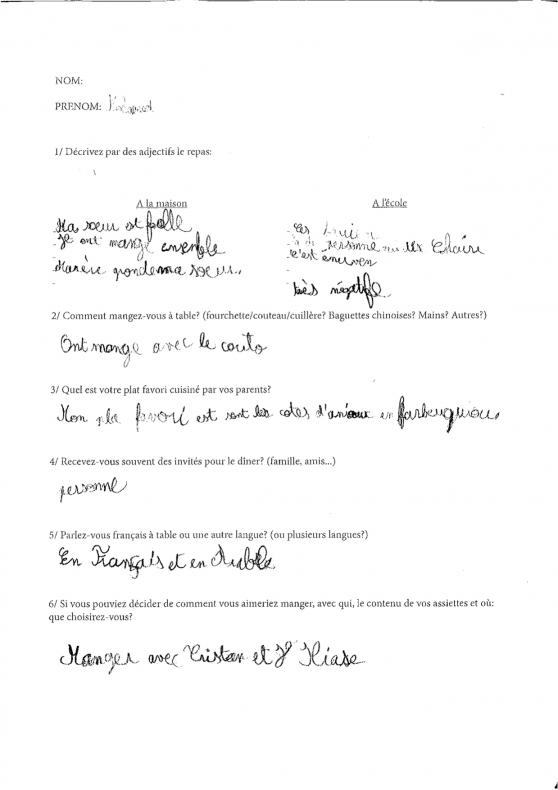 NOM:
PRENOM:
1/ Décrivez par des adjectifs le repas:
A la maison
Ma sœur et folle
- Je ont mangé ensenble
Mamère gronde ma soeur.
A l'école
- Les
- personne
c'est enerven
- très négatife
2/ Comment mangez-vous à table? (fourchette/couteau/cuillère? Baguettes chinoises? Mains? Autres?)
Ont mange avec le couto
3/ Quel est votre plat favori cuisiné par vos parents?
Mon pla favori est sont les cotes d'anioue en barbequiou.
4/ Recevez-vous souvent des invités pour le dîner? (famille, amis...)
personne
5/ Parlez-vous français à table ou une autre langue? (ou plusieurs langues?)
En Français et en Arable
6/ Si vous pouviez décider de comment vous aimeriez manger, avec qui, le contenu de vos assiettes et où:
que choisirez-vous?
Manger avec Tristan et